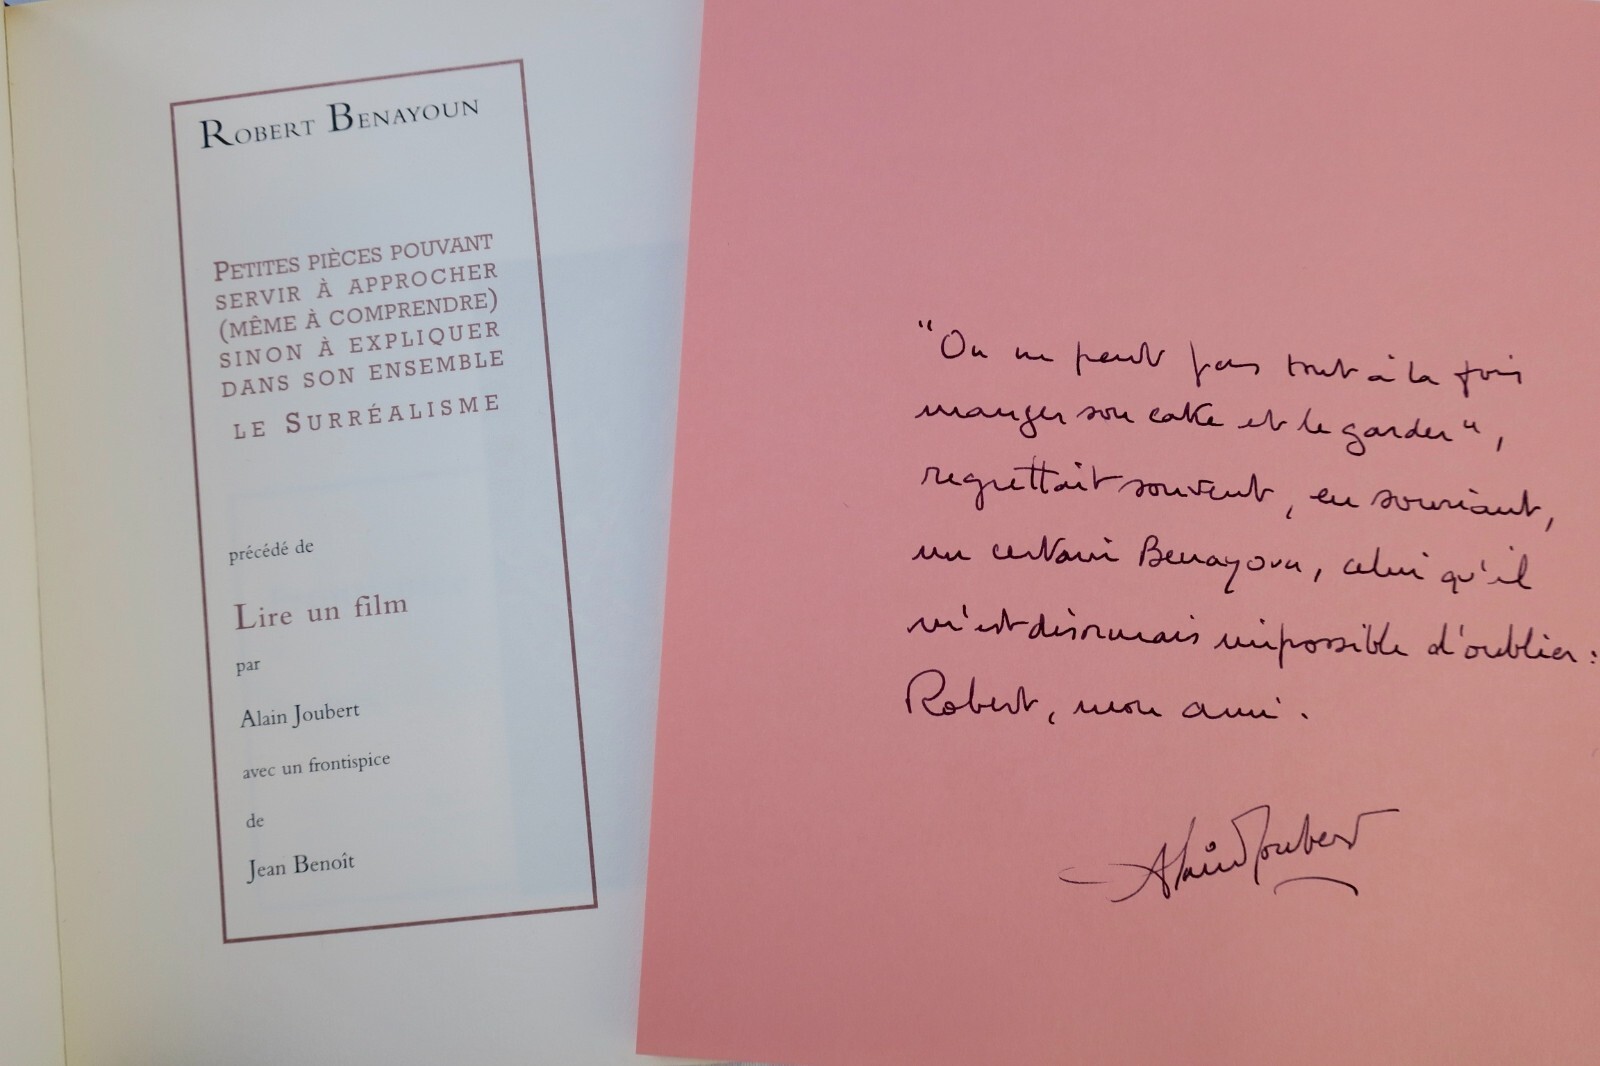 ROBERT BENAYOUN
PETITES PIÈCES POUVANT
SERVIR À APPROCHER
(MÊME À COMPRENDRE)
SINON À EXPLIQUER
DANS SON ENSEMBLE
LE SURRÉALISME
précédé de
Lire un film
par
Alain Joubert
avec un frontispice
de
Jean Benoît
"On ne peut pas tout à la fois
manger son cake et le garder",
regrettait souvent, en souriant,
un certain Benayoun, celui qu'il
m'est désormais impossible d'oublier :
Robert, mon ami.
Alain Joubert